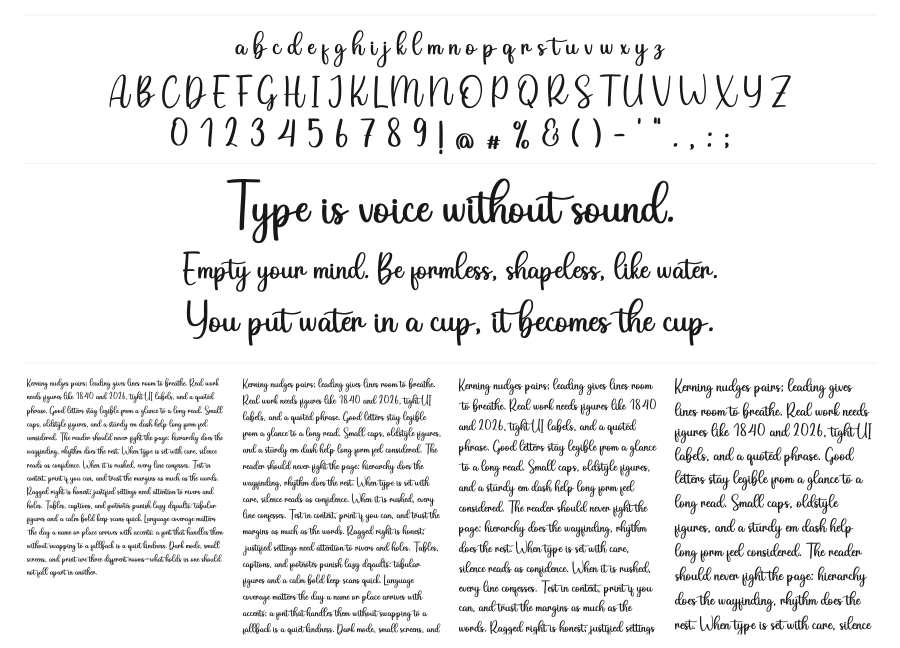 a b c d e f g h i j k l m n o p q r s t u v w x y z
A B C D E F G H I J K L M N O P Q R S T U V W X Y Z
0 1 2 3 4 5 6 7 8 9 ! @ # % & ( ) - ' " . , : ;
Type is voice without sound.
Empty your mind. Be formless, shapeless, like water.
You put water in a cup, it becomes the cup.
Kerning nudges pairs; leading gives lines room to breathe. Real work
needs figures like 1840 and 2026, tight UI labels, and a quoted
phrase. Good letters stay legible from a glance to a long read. Small
caps, oldstyle figures, and a sturdy em dash help long form feel
considered. The reader should never fight the page: hierarchy does the
wayfinding, rhythm does the rest. When type is set with care, silence
reads as confidence. When it is rushed, every line confesses. Test in
context, print if you can, and trust the margins as much as the words.
Ragged right is honest; justified settings need attention to rivers and
holes. Tables, captions, and footnotes punish lazy defaults: tabular
figures and a calm bold keep scans quick. Language coverage matters
the day a name or place arrives with accents: a font that handles them
without swapping to a fallback is a quiet kindness. Dark mode, small
screens, and print are three different rooms—what holds in one should
not fall apart in another.
Kerning nudges pairs; leading gives lines room to breathe.
Real work needs figures like 1840 and 2026, tight UI
labels, and a quoted phrase. Good letters stay legible
from a glance to a long read. Small caps, oldstyle figures,
and a sturdy em dash help long form feel considered. The
reader should never fight the page: hierarchy does the
wayfinding, rhythm does the rest. When type is set with
care, silence reads as confidence. When it is rushed, every
line confesses. Test in context, print if you can, and trust the
margins as much as the words. Ragged right is honest;
justified settings need attention to rivers and holes. Tables,
captions, and footnotes punish lazy defaults: tabular
figures and a calm bold keep scans quick. Language
coverage matters the day a name or place arrives with
accents: a font that handles them without swapping to a
fallback is a quiet kindness. Dark mode, small screens, and
Kerning nudges pairs; leading gives lines room
to breathe. Real work needs figures like 1840
and 2026, tight UI labels, and a quoted
phrase. Good letters stay legible from a glance
to a long read. Small caps, oldstyle figures,
and a sturdy em dash help long form feel
considered. The reader should never fight the
page: hierarchy does the wayfinding, rhythm
does the rest. When type is set with care,
silence reads as confidence. When it is rushed,
every line confesses. Test in context, print if you
can, and trust the margins as much as the
words. Ragged right is honest; justified settings
Kerning nudges pairs; leading gives
lines room to breathe. Real work needs
figures like 1840 and 2026, tight UI
labels, and a quoted phrase. Good
letters stay legible from a glance to a
long read. Small caps, oldstyle
figures, and a sturdy em dash help
long form feel considered. The reader
should never fight the page: hierarchy
does the wayfinding, rhythm does the
rest. When type is set with care, silence